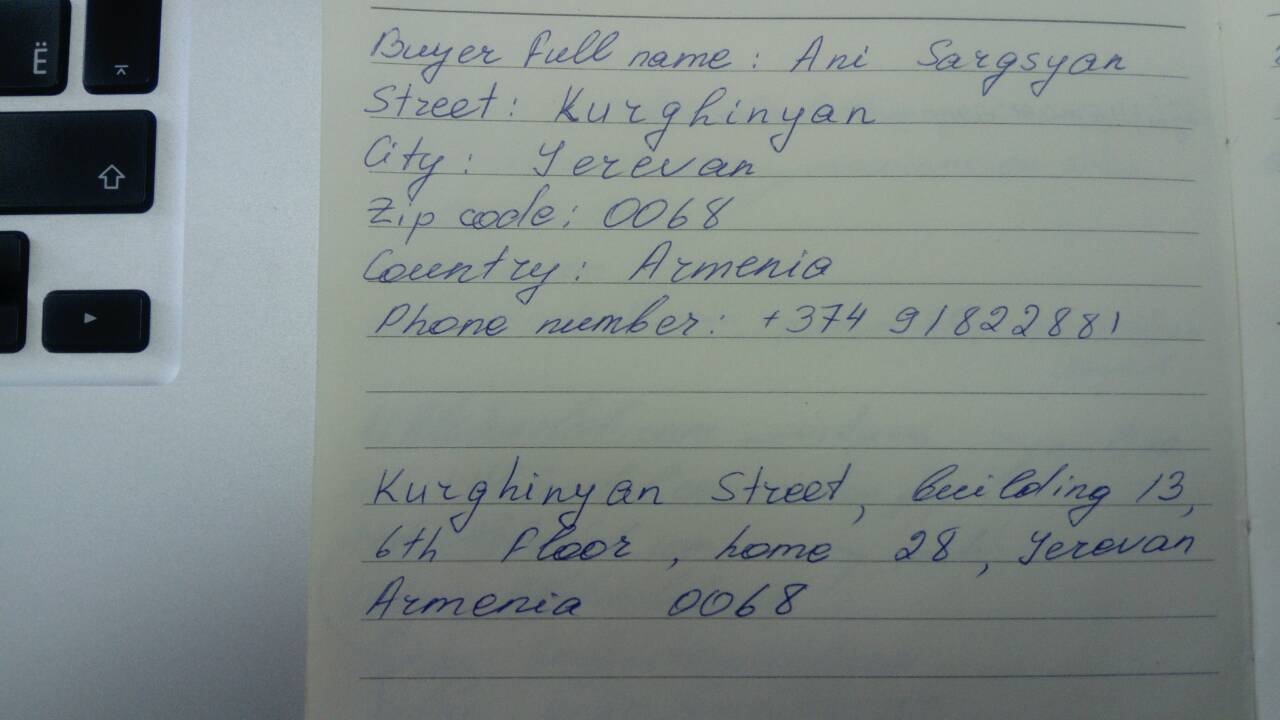 Ё
Buyer full name: Ani Sargsyan
Street: Kurghinyan
City: Yerevan
Zip code: 0068
Country: Armenia
Phone number: +374 91822881
Kurghinyan Street, building 13,
6th floor, home 28, Yerevan
Armenia 0068